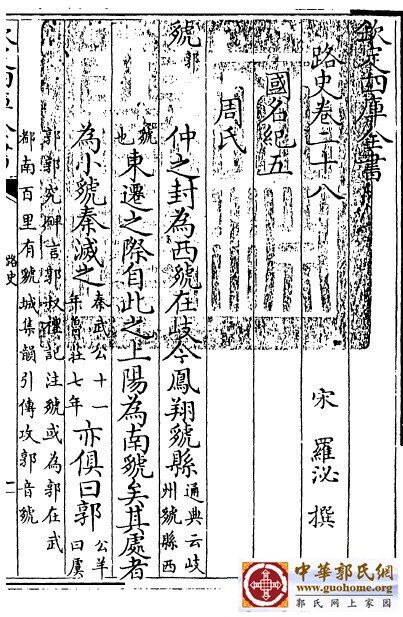 欽定四庫全書
路史卷二十八
宋 羅泌 撰
國名紀五
周氏
虢 郭
仲之封為西虢在岐今鳳翔虢縣 通典云岐州虢縣西
虢也 東遷之際自此之上陽為南虢矣其處者
為小虢秦滅之 秦武公十一年魯莊七年 亦俱曰郭 公羊曰虞
郭郭究碑言郭叔禮記注虢或為郭在武
都南百里有虢城集韻引傳攻郭音虢
路史
中華郭氏網
www.guohome.org
郭氏网上家园